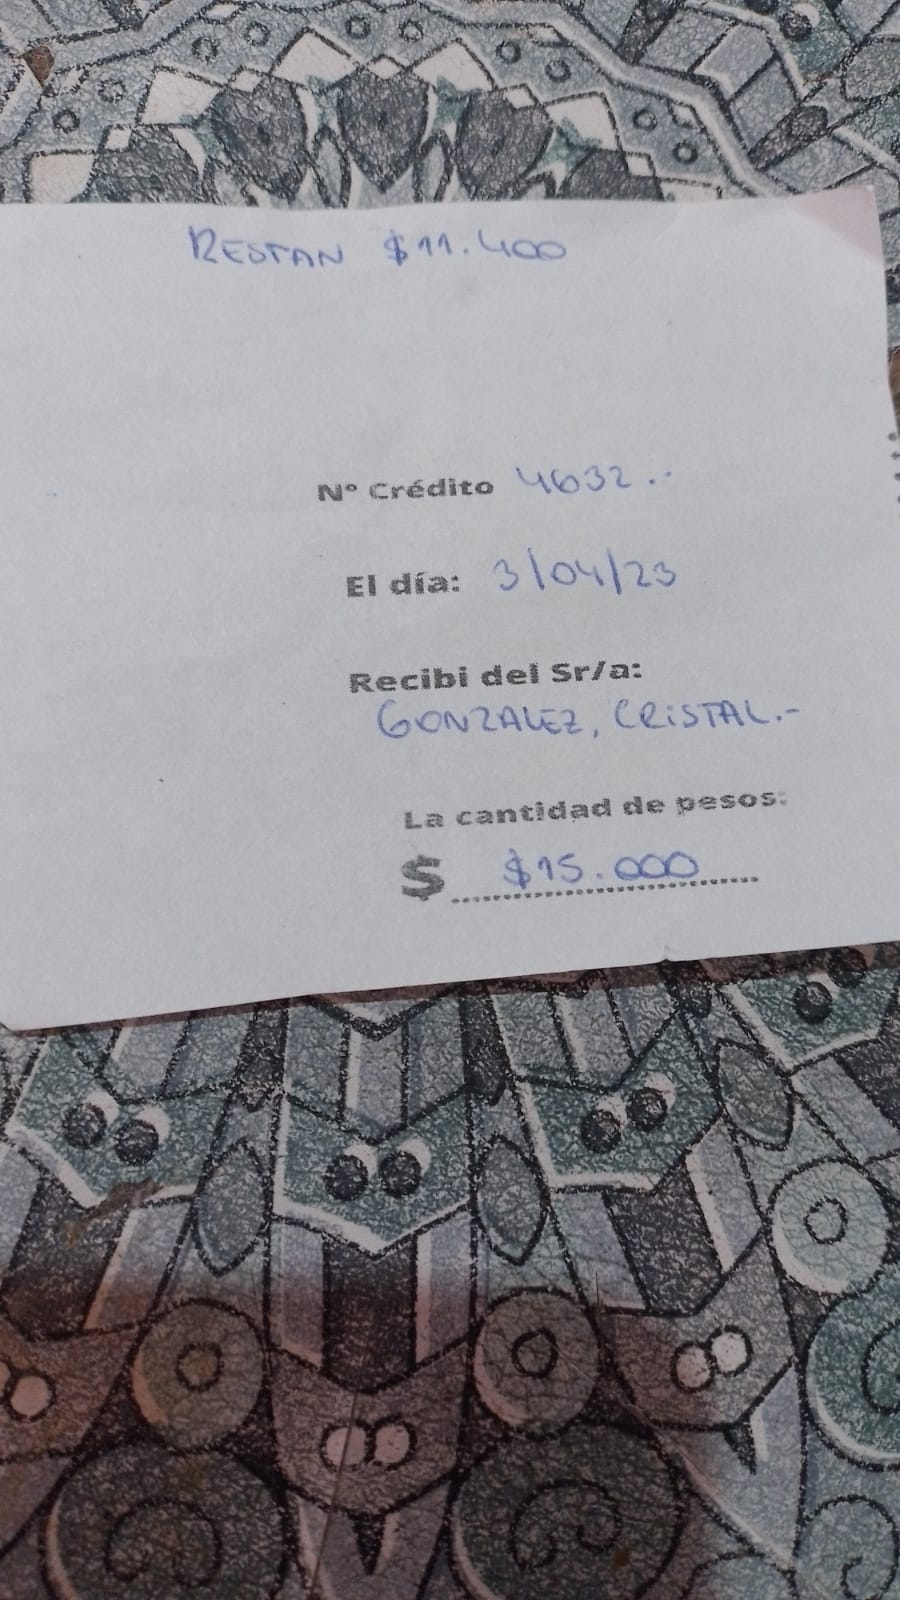 RESTAN $11.400
N° Crédito 4632.-
El día: 3/04/23
Recibi del Sr/a:
GONZALEZ, CRISTAL.-
La cantidad de pesos:
$ $15.000